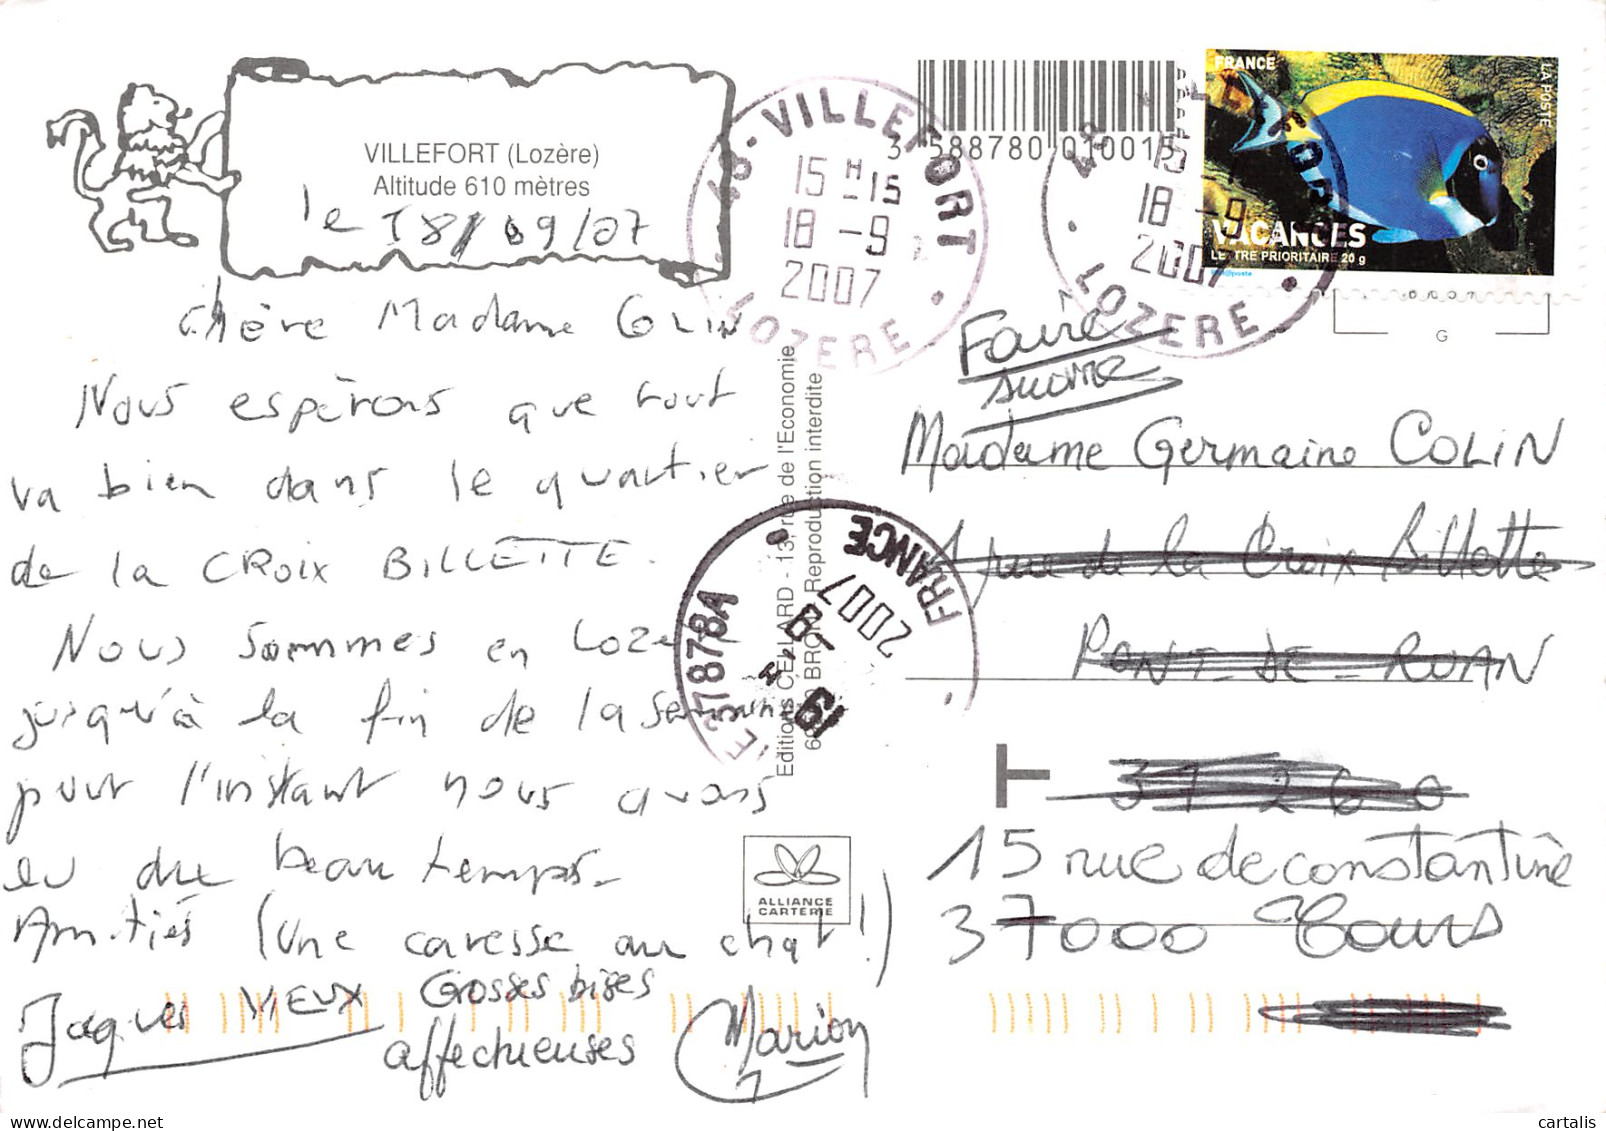 VILLEFORT (Lozère)
Altitude 610 mètres
le 18/09/07
Chère Madame COLIN
Nous espérons que tout
va bien dans le quartier
de la CROIX BILLETTE.
Nous sommes en Lozère
jusqu'à la fin de la semaine
pour l'instant nous avons
eu du beau temps.
Amitiés (Une caresse au chat!)
Jacques VIEUX Grosses bises
affectueuses Marion
48 - VILLEFORT
15 H 15
18 - 9
2007
LOZERE
3 588780 010015
48 VILLEFORT
15
18 - 9
2007
LOZERE
FRANCE
LA POSTE
VACANCES
LETTRE PRIORITAIRE 20 g
G
Editions CELLARD - 13, rue de l'Economie
BRON Reproduction interdite
37878A
19 H
- 9
2007
FRANCE
ALLIANCE
CARTERIE
Faire
suivre
Madame Germaine COLIN
1 rue de la Croix Billette
PONT-DE-RUAN
37260
T
15 rue de constantine
37000 Tours
cartalis